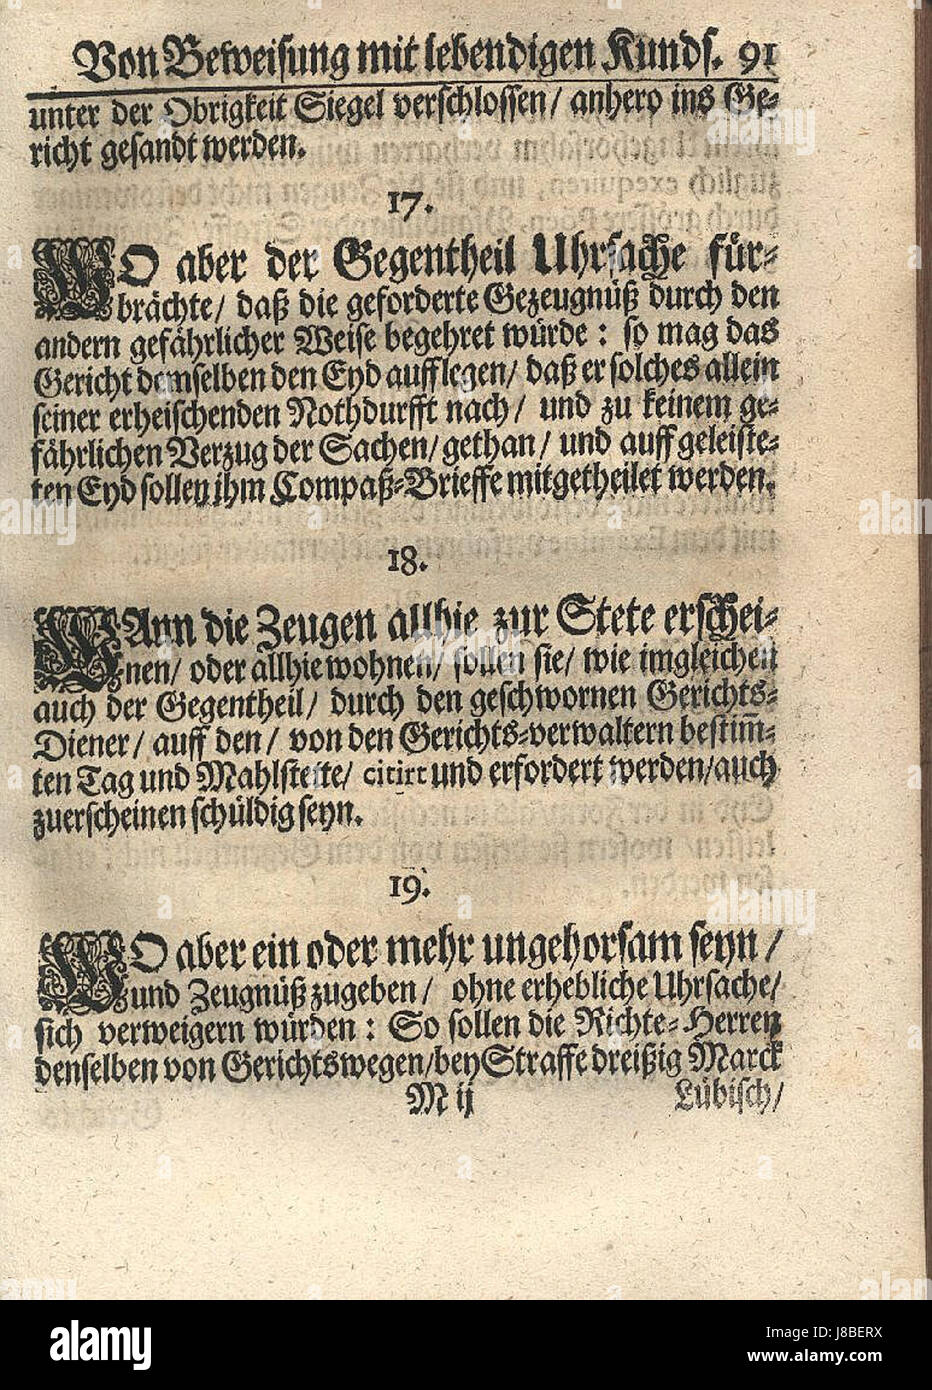 Von Beweisung mit lebendigen Kunds. 91
unter der Obrigkeit Siegel verschlossen / anhero ins Ge-
richt gesandt werden.
17.
WO aber der Gegentheil Uhrsache für-
brächte / daß die geforderte Gezeugnüß durch den
andern gefährlicher Weise begehret würde : so mag das
Gericht demselben den Eyd aufflegen / daß er solches allein
seiner erheischenden Nothdurfft nach / und zu keinem ge-
fährlichen Verzug der Sachen / gethan / und auff geleiste-
ten Eyd sollen ihm Compaß-Brieffe mitgetheilet werden.
18.
WAnn die Zeugen allhie zur Stete erschei-
nen / oder allhie wohnen / sollen sie / wie imgleichen
auch der Gegentheil / durch den geschwornen Gerichts-
Diener / auff den / von den Gerichts-verwaltern bestim̄-
ten Tag und Mahlstette / citirt und erfordert werden / auch
zuerscheinen schüldig seyn.
19.
WO aber ein oder mehr ungehorsam seyn /
und Zeugnüß zugeben / ohne erhebliche Uhrsache /
sich verweigern würden : So sollen die Richte-Herren
denselben von Gerichtswegen / bey Straffe dreißig Marck
M ij Lübisch /
alamy
Image ID: J8BERX
www.alamy.com